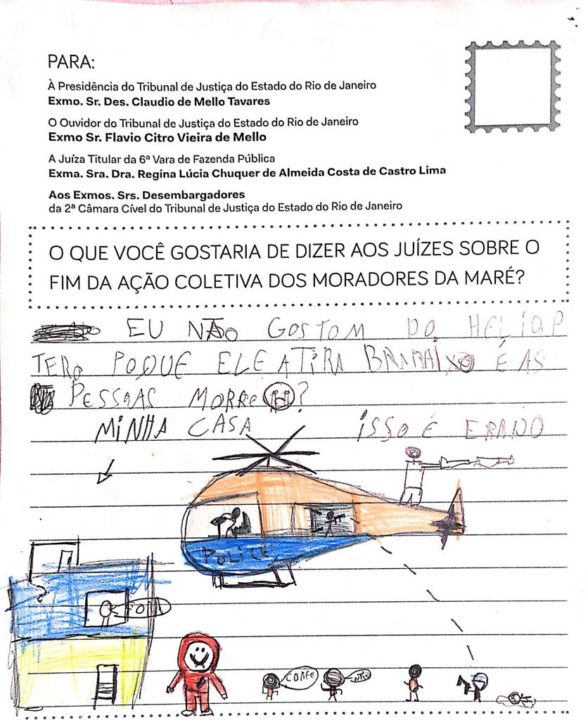 PARA:
À Presidência do Tribunal de Justiça do Estado do Rio de Janeiro
Exmo. Sr. Des. Claudio de Mello Tavares
O Ouvidor do Tribunal de Justiça do Estado do Rio de Janeiro
Exmo Sr. Flavio Citro Vieira de Mello
A Juíza Titular da 6ª Vara de Fazenda Pública
Exma. Sra. Dra. Regina Lúcia Chuquer de Almeida Costa de Castro Lima
Aos Exmos. Srs. Desembargadores
da 2ª Câmara Cível do Tribunal de Justiça do Estado do Rio de Janeiro
O QUE VOCÊ GOSTARIA DE DIZER AOS JUÍZES SOBRE O
FIM DA AÇÃO COLETIVA DOS MORADORES DA MARÉ?
EU NÃO GOSTOM DO HELIOP
TERO POQUE ELE ATIRA BRAMAIXO É AS
PESSOAS MORRE?
MINHA CASA ISSO É ERADO
POLICE
CORRE
NÃO